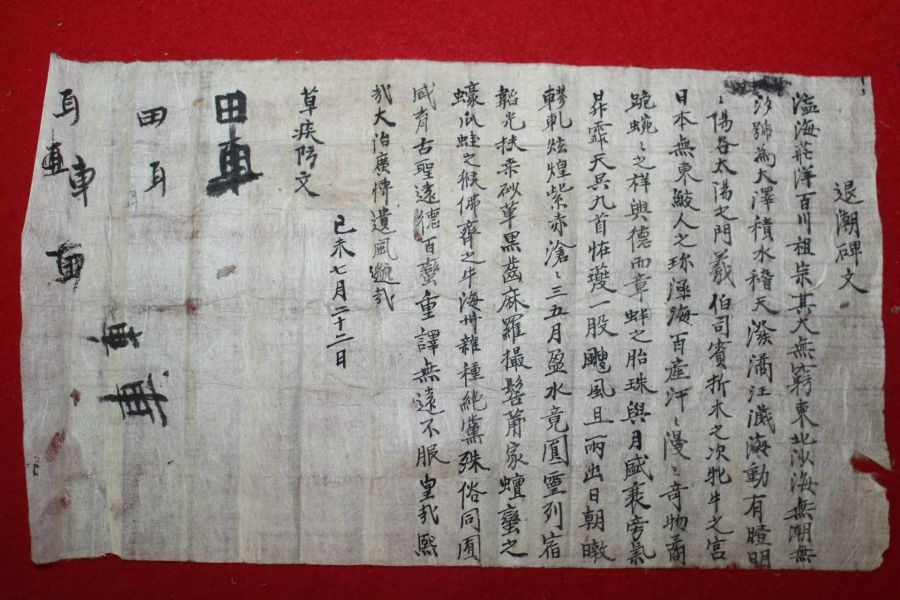 退潮碑文
瀛海莊洋百川祖宗其大無窮東北沙海無潮無
汐號為大澤積水稽天潑潏汪濊海動有曀明
〻暘谷太陽之門羲伯司賓析木之次牝牛之宮
日本無東鮫人之珍涵海百產汗〻漫〻奇物譎
詭蜿〻之祥與德而章蚌之胎珠與月盛衰旁氣
昇霏天吳九首恠夔一股颷風且雨出日朝暾
轇軋炫煌紫赤滄〻三五月盈水竟圓靈列宿
韜光扶桑砂華黑齒麻羅撮髻莆家蟺蠻之
蠔爪蛙之猴佛齊之牛海外雜種絶黨殊俗同囿
咸育古聖遠德百蠻重譯無遠不服皇哉熙
哉大治廣博遺風邈哉
己未七月二十二日
田車
田耳
車
耳
車